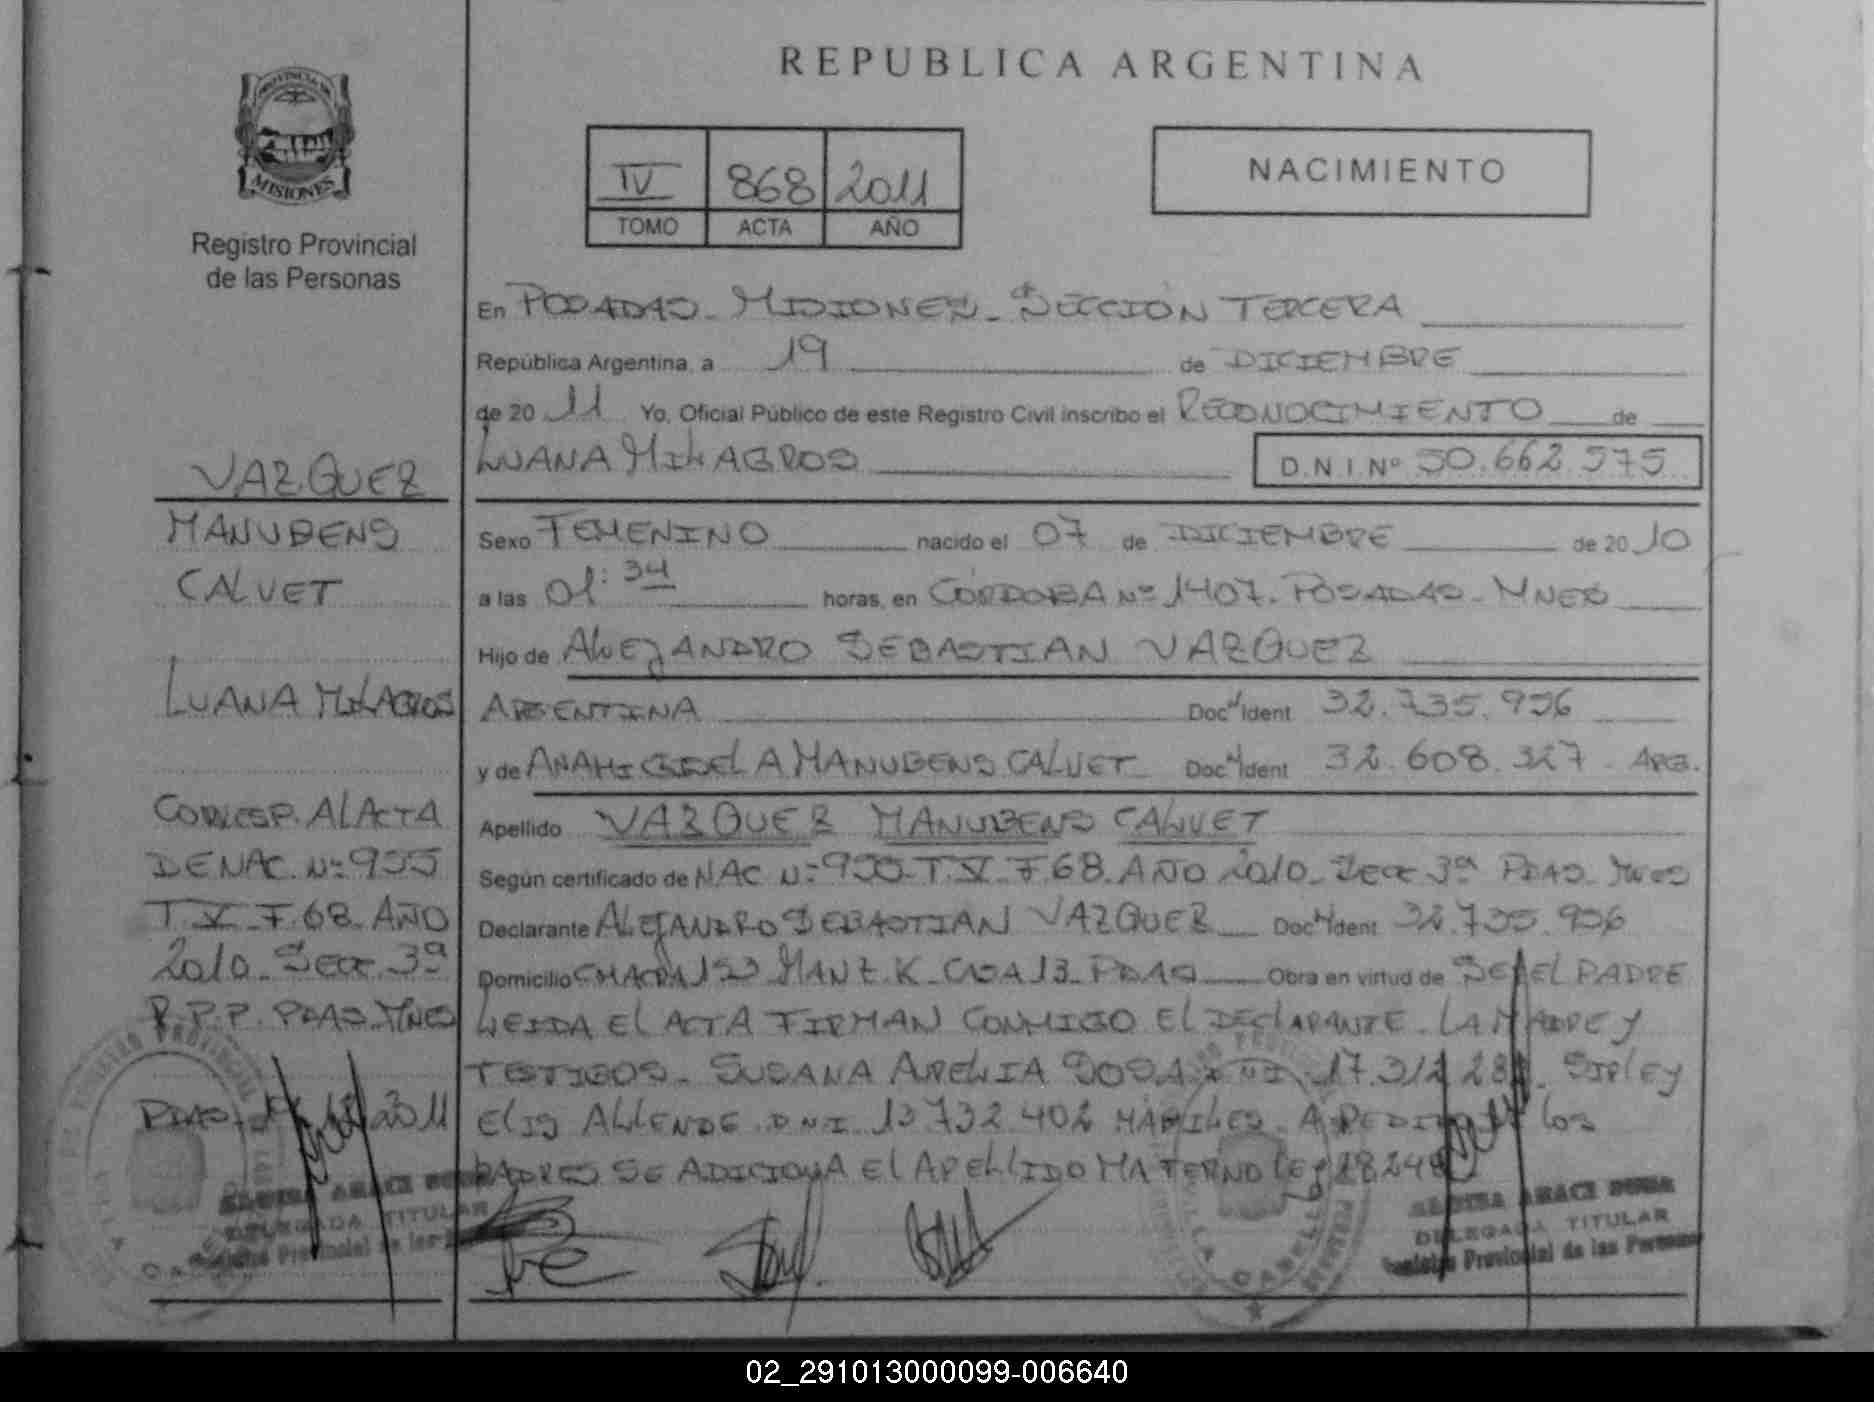 REPUBLICA ARGENTINA
PROVINCIA DE
MISIONES
Registro Provincial
de las Personas
IV 868 2011
TOMO ACTA AÑO
NACIMIENTO
En POSADAS - MISIONES - SECCION TERCERA
República Argentina, a 19 de DICIEMBRE
de 20 11 Yo, Oficial Público de este Registro Civil inscribo el RECONOCIMIENTO de
LUANA MILAGROS D.N.I.Nº 50.662.575
Sexo FEMENINO nacido el 07 de DICIEMBRE de 20 10
a las 01:34 horas, en CORDOBA Nº 1407. POSADAS - MNES
Hijo de ALEJANDRO SEBASTIAN VAZQUEZ
ARGENTINA Doc N Ident 32.735.956
y de ANAHI GISELA MANUBENS CALVET Doc N Ident 32.608.327 - ARG.
Apellido VAZQUEZ MANUBENS CALVET
Según certificado de NAC Nº 955 - T. V F. 68. AÑO 2010 - Secc 3ª PDAS - MNES
Declarante ALEJANDRO SEBASTIAN VAZQUEZ Doc N Ident 32.735.956
Domicilio CHACRA 153 MANZ. K - CASA 13 - PDAS Obra en virtud de SER EL PADRE
LEIDA EL ACTA FIRMAN CONMIGO EL DECLARANTE - LA MADRE Y
TESTIGOS - SUSANA SOSA DNI 17.312.28 - SIRLEY
ELIS ALLENDE. DNI. 13.732.402 HABILES - A PEDIDO DE LOS
PADRES SE ADICIONA EL APELLIDO MATERNO LEY 18248
VAZQUEZ
MANUBENS
CALVET
LUANA MILAGROS
CORRESP. AL ACTA
DE NAC. Nº 955
T. V F. 68. AÑO
2010 - Secc. 3ª
R.P.P. PDAS. MNES
PDAS, 2011
ARACI
DELEGADA TITULAR
Registro Provincial de las
ARACI
DELEGADA TITULAR
Registro Provincial de las Personas
02_291013000099-006640